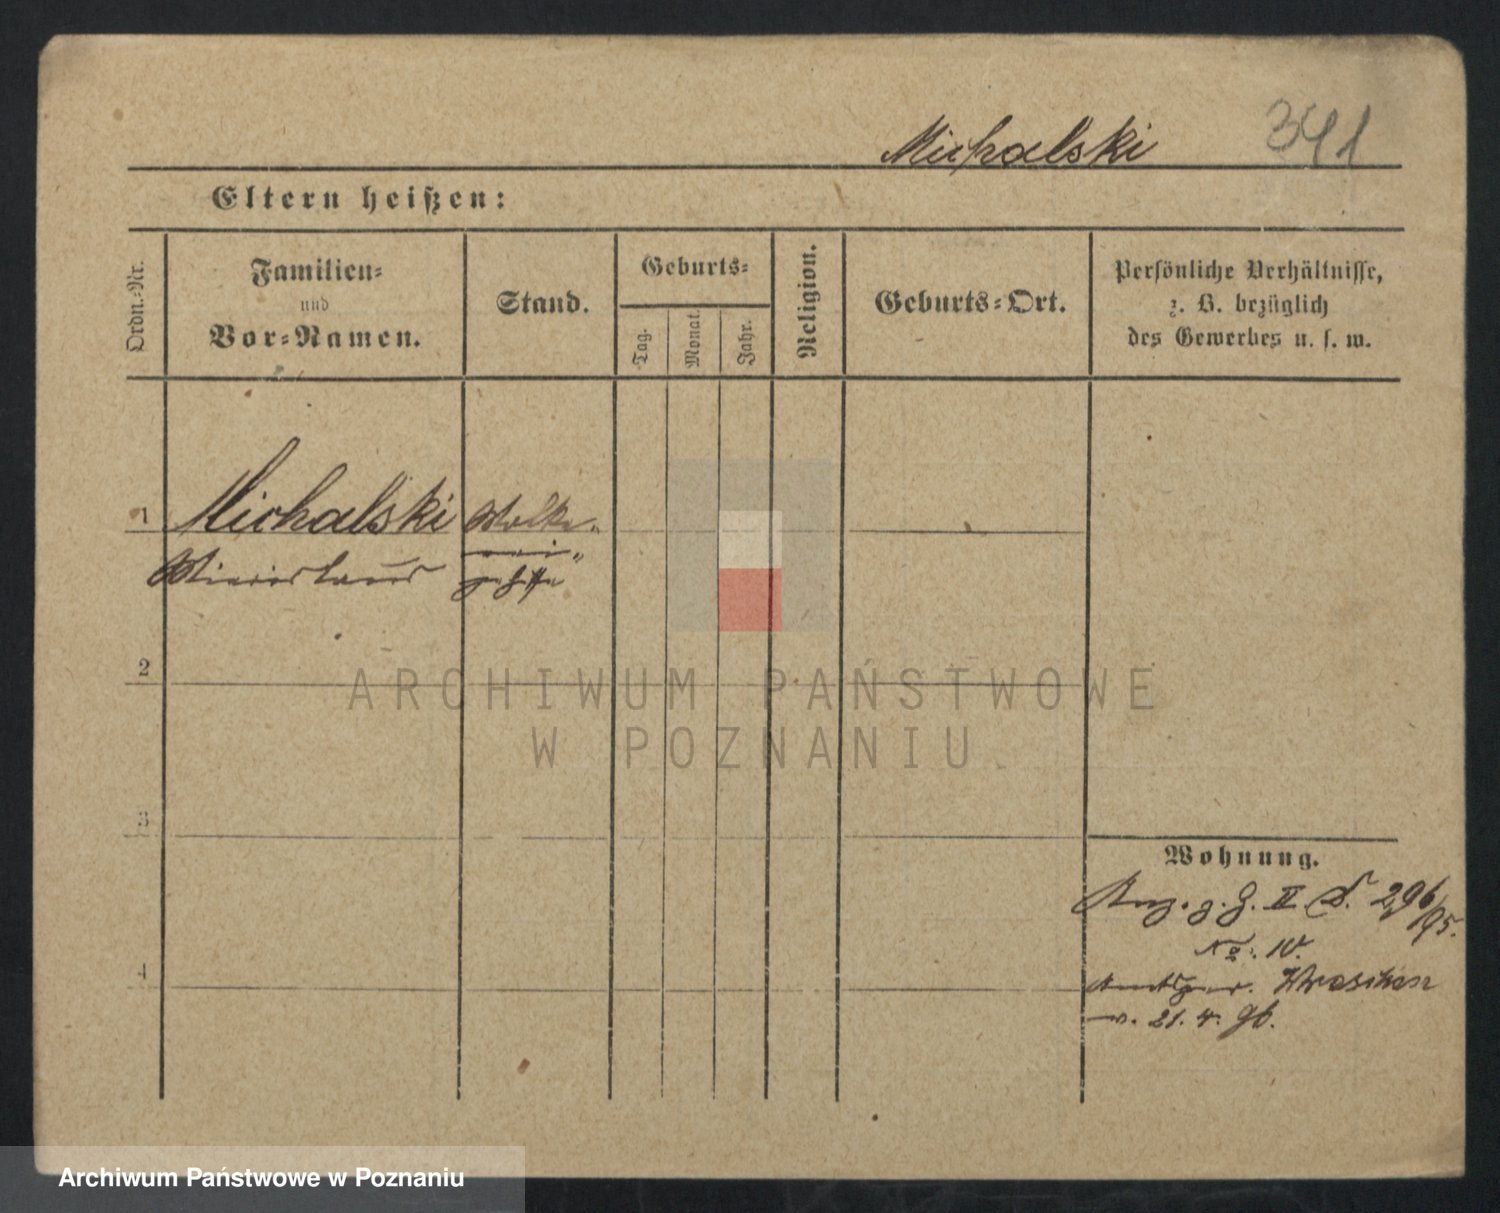 Michalski 341
Eltern heißen:
Ordn.-Nr.
Familien-
und
Vor-Namen.
Stand.
Geburts-
Tag.
Monat.
Jahr.
Religion.
Geburts-Ort.
Persönliche Verhältnisse,
z. B. bezüglich
des Gewerbes u. s. w.
1 Michalski Molke-
rei-
gehilfe
2
3
4
Wohnung.
II 296/95.
No: 10.
Amtsger. Wreschen
v. 21.4.96.
ARCHIWUM PAŃSTWOWE
W POZNANIU
Archiwum Państwowe w Poznaniu